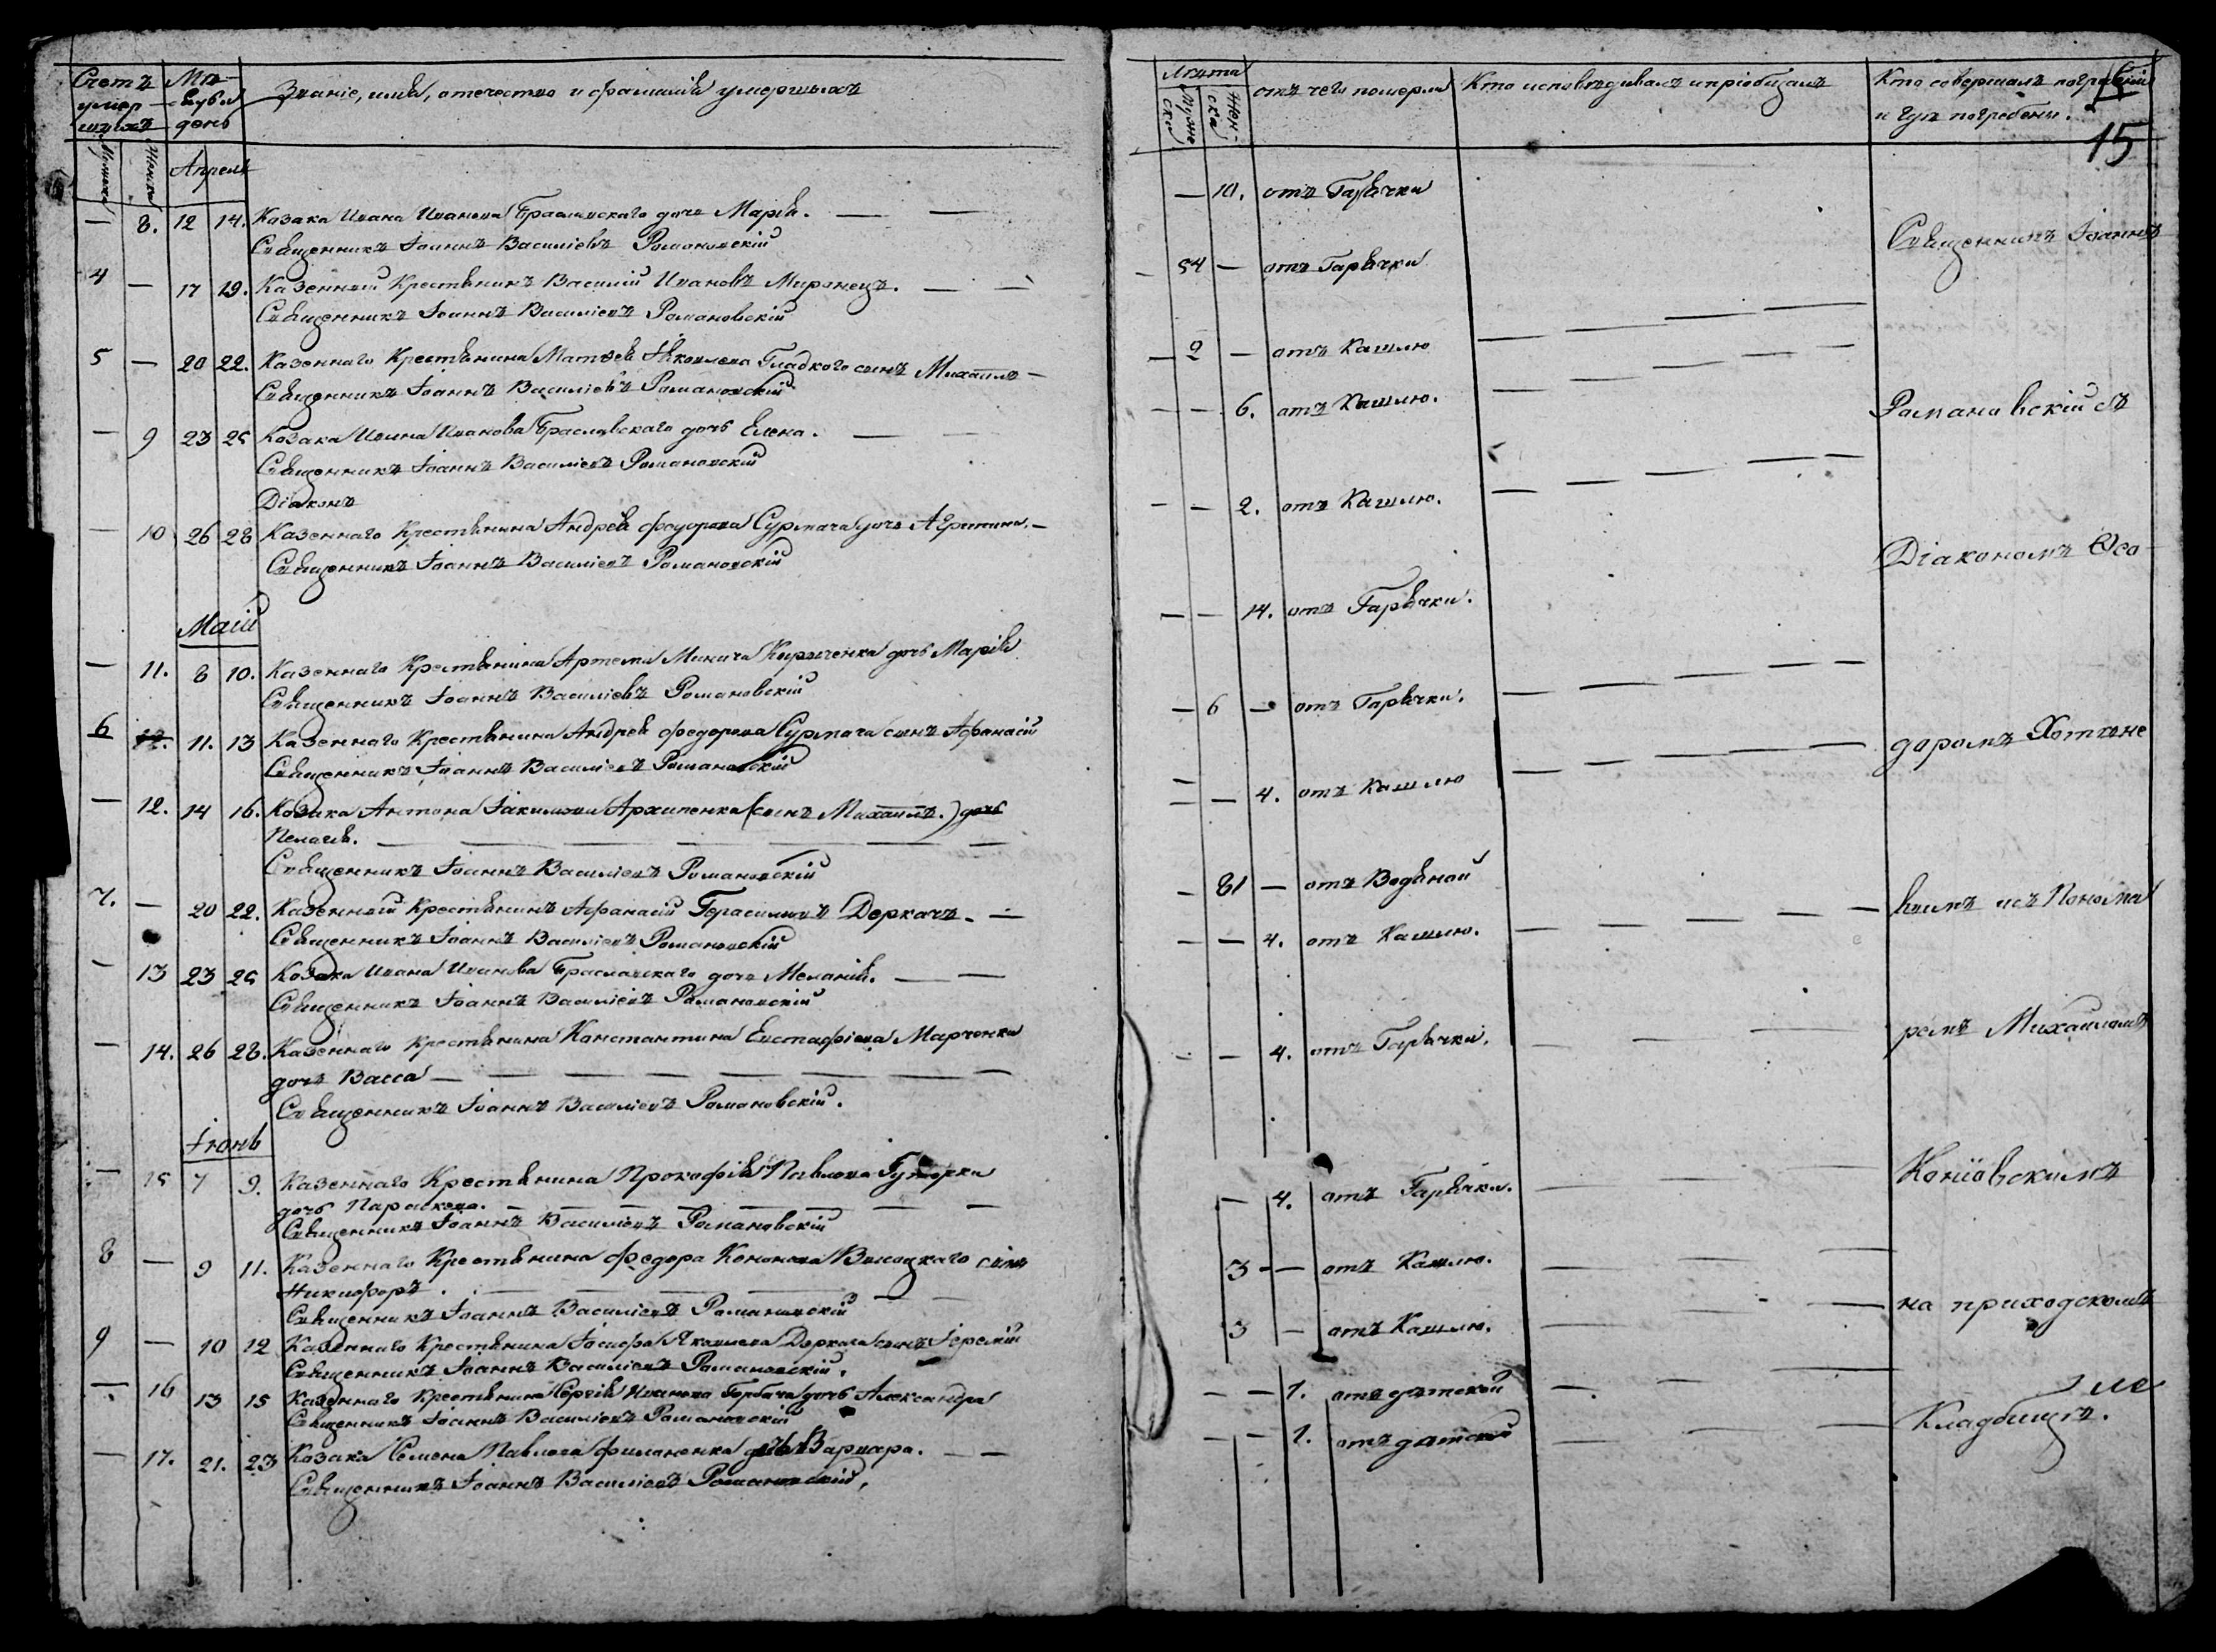 Счетъ умер-шихъ
Мужеска
Женска
Мѣ-сяцъ и день
Званіе, имя, отечество и фамилія умершихъ
Апрель
— 8. 12 14. Козака Ивана Иванова Браславскаго дочь Марія. — —
Священникъ Іоаннъ Василіевъ Романовскій
4 — 17 19. Казенный Крестянинъ Василій Ивановъ Миронецъ. — —
Священникъ Іоаннъ Василіевъ Романовскій
5 — 20 22. Казеннаго Крестянина Матвея Яковлева Гладкого сынъ Михаилъ —
Священникъ Іоаннъ Василіевъ Романовскій
— 9 23 25 Козака Ивана Иванова Браславскаго дочь Елена. — —
Священникъ Іоаннъ Василіевъ Романовскій
Діаконъ
— 10 26 28 Казеннаго Крестянина Андрея Федорова Сурмача дочь —
Священникъ Іоаннъ Василіевъ Романовскій
Маій
— 11. 8 10. Казеннаго Крестянина Артема Минича дочь Марія
Священникъ Іоаннъ Василіевъ Романовскій
6 12. 11. 13 Казеннаго Крестянина Андрея Федорова Сурмача сынъ Афанасій
Священникъ Іоаннъ Василіевъ Романовскій
— 12. 14 16. Козака Антона Іакимова Архипенка (сынъ Михаилъ.) дочь
Пелагія. — — — — — — —
Священникъ Іоаннъ Василіевъ Романовскій
7. — 20 22. Казенный Крестянинъ Афанасій Герасимовъ Деркачъ. —
Священникъ Іоаннъ Василіевъ Романовскій
— 13 23 25 Козака Ивана Иванова Браславскаго дочь Меланія. — —
Священникъ Іоаннъ Василіевъ Романовскій
— 14. 26 28. Казеннаго Крестянина Константина Евстафіева Марченка
дочь Васса — — — — — — —
Священникъ Іоаннъ Василіевъ Романовскій.
Іюнь
— 15 7 9. Казеннаго Крестянина Прокофія Павлова
дочь Параскева. — — — — — —
Священникъ Іоаннъ Василіевъ Романовскій
8 — 9 11. Казеннаго Крестянина Федора Кононова Висоцкаго сынъ
Никифоръ. — — — — — —
Священникъ Іоаннъ Василіевъ Романовскій
9 — 10 12 Казеннаго Крестянина Іосифа Яковлева Деркача сынъ Іеремій
Священникъ Іоаннъ Василіевъ Романовскій.
— 16 13 15 Казеннаго Крестянина Сергія Иванова Горбача дочь Александра
Священникъ Іоаннъ Василіевъ Романовскій
— 17. 21. 23 Козака Семена Павлова Филоненка дочь Варвара. — —
Священникъ Іоаннъ Василіевъ Романовскій.
Лѣта
Мужеска
Женска
отъ чего померли
Кто исповѣдивалъ и пріобщалъ
Кто совершалъ погребеніе
и гдѣ погребены.
15
— 10. отъ Гарячки
Священникъ Іоаннъ
— 54 — отъ Гарячки
— 2 — отъ Кашлю — — — —
— — 6. отъ Кашлю. — — — —
Романовскій съ
— — 2. отъ Кашлю. — — — —
Діакономъ Ѳео-
— — 14. отъ Гарячки.
— 6 — отъ Гарячки. — — — —
доромъ Хотяне
— — 4. отъ Кашлю — — — —
— 81 — отъ Водяной
вимъ исъ Понома
— — 4. отъ Кашлю. — — — —
ремъ Михаиломъ
— — 4. отъ Гарячки. — — —
— 4. отъ Гарячки. — — —
3 — — отъ Кашлю. — — —
на приходскомъ
3 — отъ Кашлю. — — —
— — 1. отъ дѣтской — — —
Кладбищѣ.
— — 1. отъ дѣтской — — —